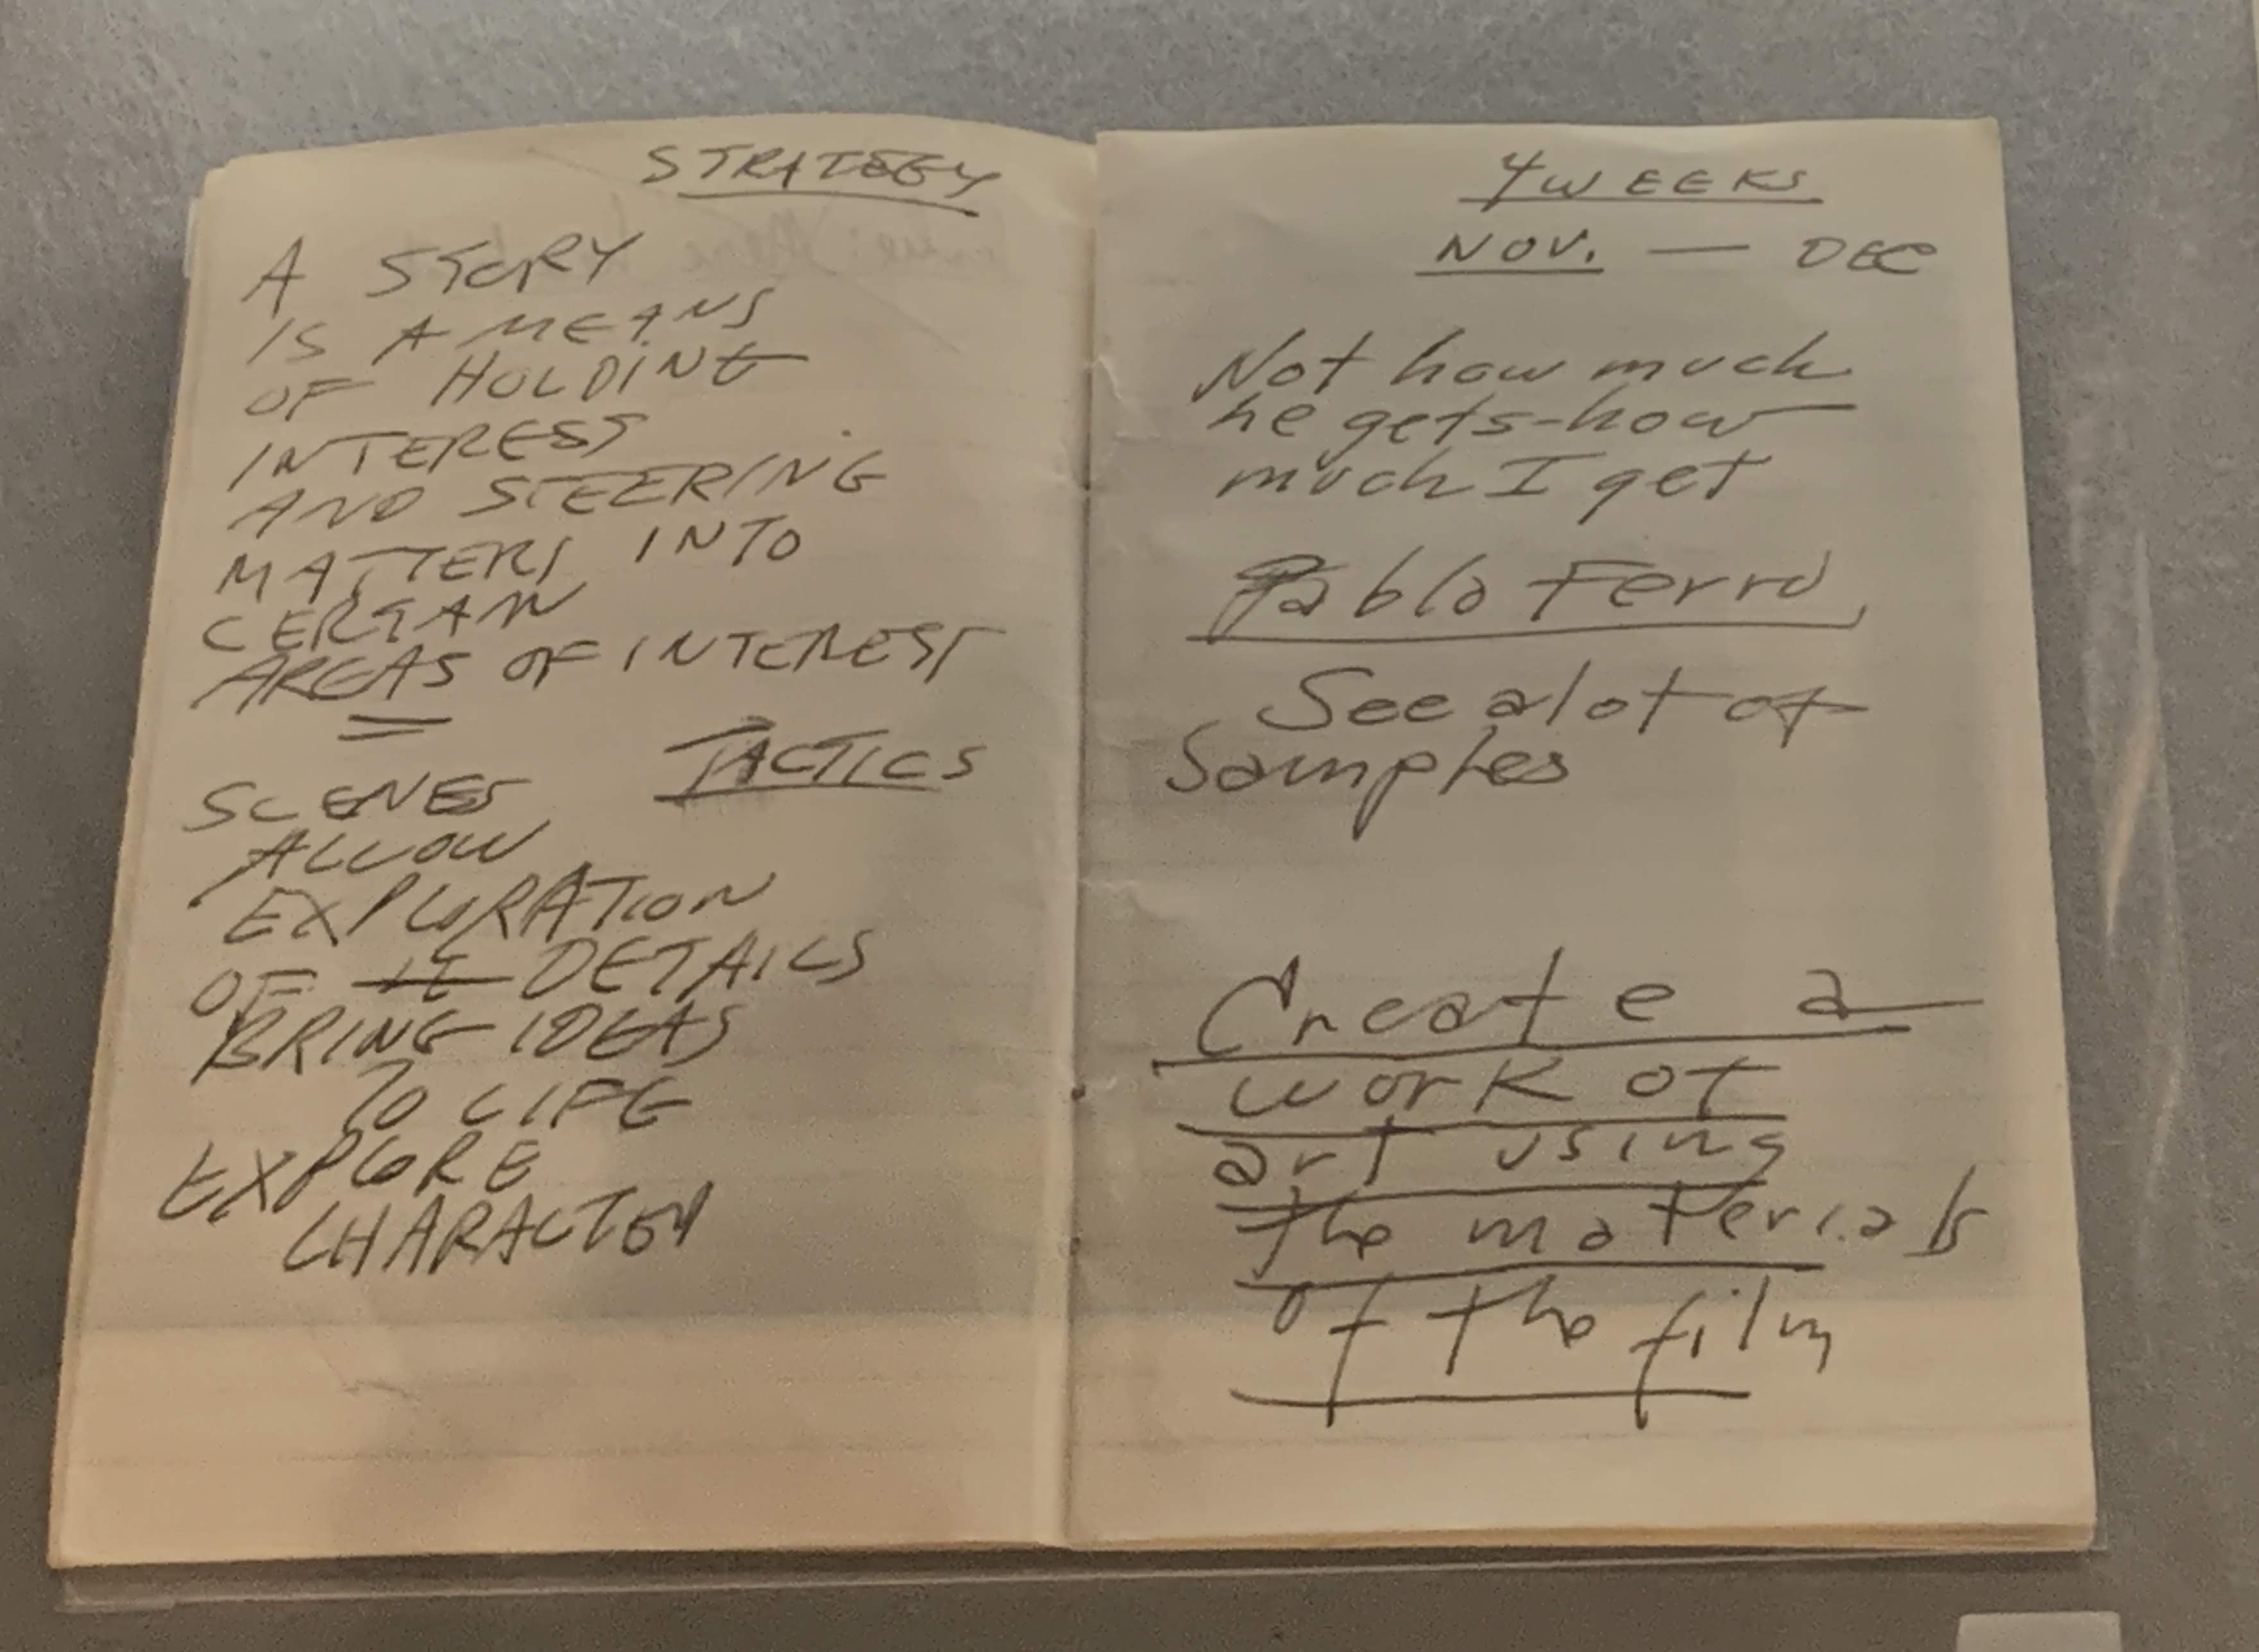 STRATEGY
A STORY
IS A MEANS
OF HOLDING
INTERESS
AND STEERING
MATTERS INTO
CERTAN
AREAS OF INTEREST
TACTICS
SCENES
ALLOW
EXPLORATION
OF DETAILS
BRING IDEAS
TO LIFE
EXPLORE
CHARACTER
4 WEEKS
NOV. — DEC
Not how much
he gets-how
much I get
Pablo Ferro,
See a lot of
Samples
Create a
work of
art using
the materials
of the film